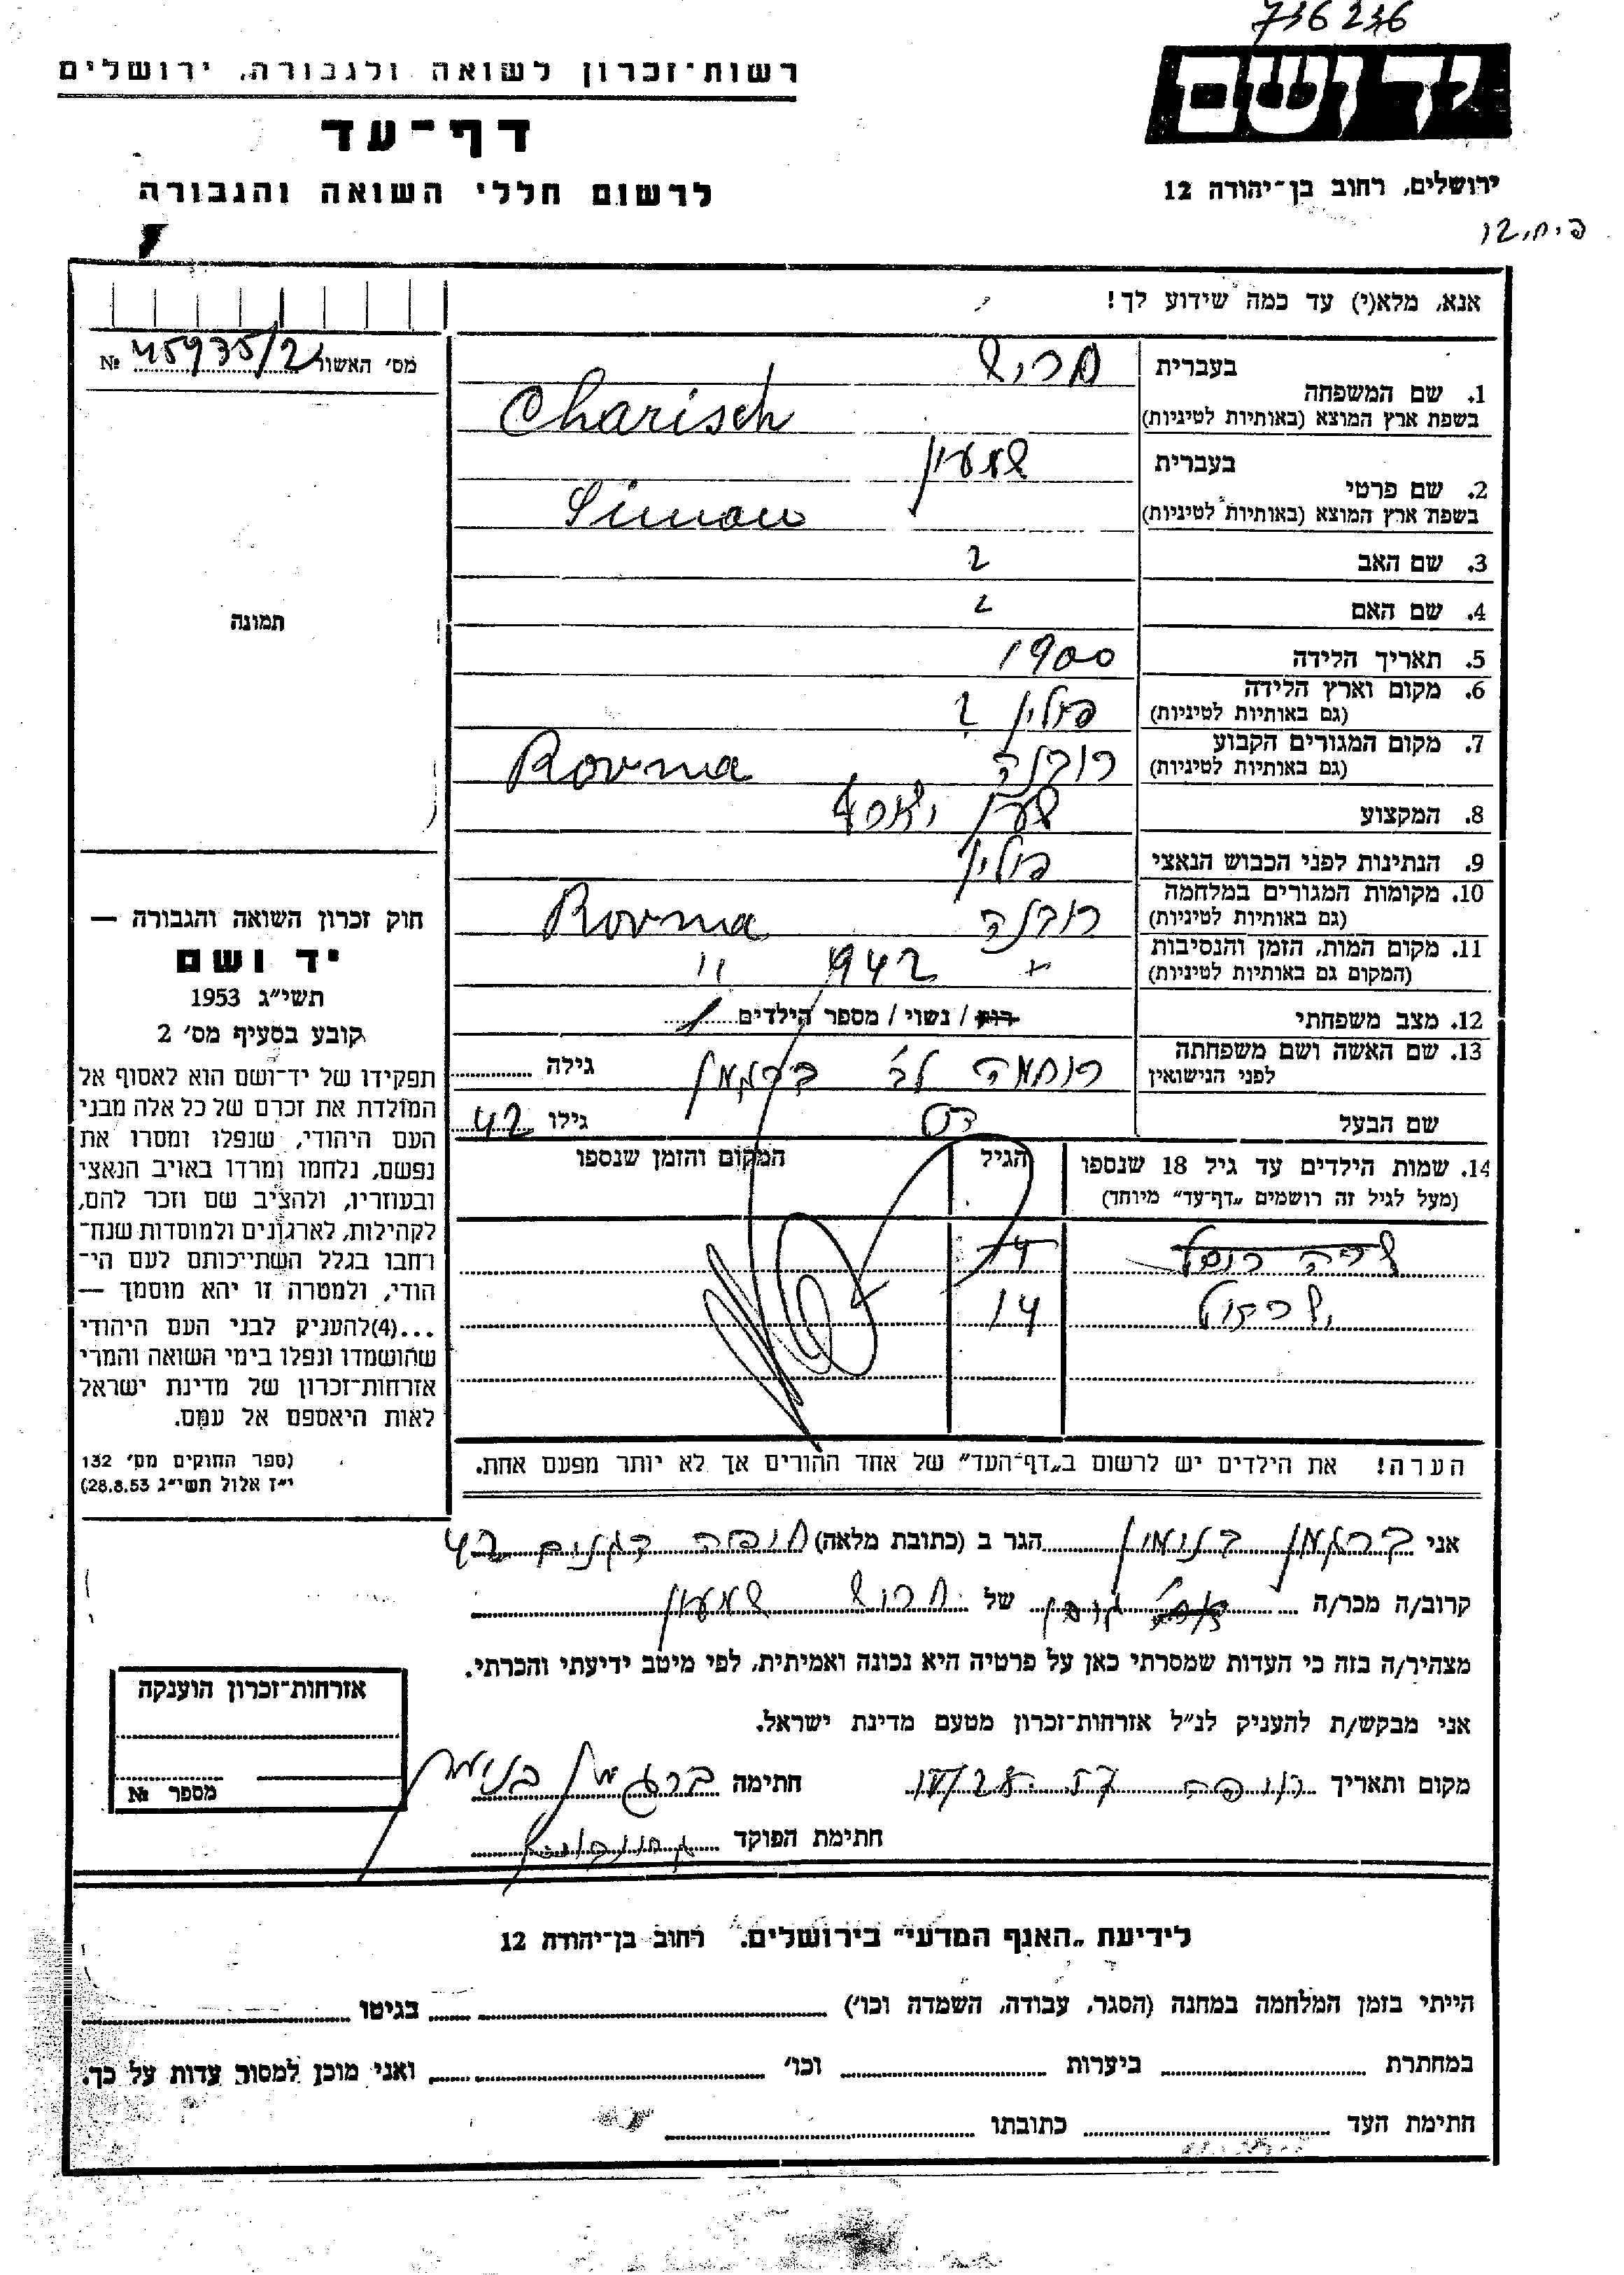 736236
רשות־זכרון לשואה ולגבורה, ירושלים
דף־עד
לרשום חללי השואה והגבורה
יד ושם
ירושלים, רחוב בן־יהודה 12
אנא, מלא(י) עד כמה שידוע לך!
מס׳ האשור 45935/2 №
תמונה
בעברית חריש
1. שם המשפחה
בשפת ארץ המוצא (באותיות לטיניות) Charisch
בעברית שמעון
2. שם פרטי
בשפת ארץ המוצא (באותיות לטיניות) Simon
3. שם האב ?
4. שם האם ?
5. תאריך הלידה 1900
6. מקום וארץ הלידה
(גם באותיות לטיניות) פולין ?
7. מקום המגורים הקבוע
(גם באותיות לטיניות) רובנה Rovna
8. המקצוע
9. הנתינות לפני הכבוש הנאצי פולין
10. מקומות המגורים במלחמה
(גם באותיות לטיניות) רובנה Rovna
11. מקום המות, הזמן והנסיבות
(המקום גם באותיות לטיניות) 1942 "
12. מצב משפחתי רווק / נשוי / מספר הילדים 1
13. שם האשה ושם משפחתה
לפני הנישואין רוחמה לב׳ ברגמן גילה
שם הבעל גילו 42
14. שמות הילדים עד גיל 18 שנספו הגיל המקום והזמן שנספו
(מעל לגיל זה רושמים „דף־עד״ מיוחד)
14
הערה! את הילדים יש לרשום ב„דף־העד״ של אחד ההורים אך לא יותר מפעם אחת.
חוק זכרון השואה והגבורה —
יד ושם
תשי״ג 1953
קובע בסעיף מס׳ 2
תפקידו של יד־ושם הוא לאסוף אל
המולדת את זכרם של כל אלה מבני
העם היהודי, שנפלו ומסרו את
נפשם, נלחמו ומרדו באויב הנאצי
ובעוזריו, ולהציב שם וזכר להם,
לקהילות, לארגונים ולמוסדות שנח־
רחבו בגלל השתייכותם לעם הי־
הודי, ולמטרה זו יהא מוסמך —
...(4)להעניק לבני העם היהודי
שהושמדו ונפלו בימי השואה והמרי
אזרחות־זכרון של מדינת ישראל
לאות היאספם אל עמם.
(ספר החוקים מס׳ 132
י״ז אלול תשי״ג 28.8.53)
אני ברגמן בנימין הגר ב (כתובת מלאה) חיפה דגניה 42
קרוב/ה מכר/ה של חריש שמעון
מצהיר/ה בזה כי העדות שמסרתי כאן על פרטיה היא נכונה ואמיתית, לפי מיטב ידיעתי והכרתי.
אני מבקש/ת להעניק לנ״ל אזרחות־זכרון מטעם מדינת ישראל.
מקום ותאריך חיפה חתימה ברגמן בנימין
חתימת הפוקד
אזרחות־זכרון הוענקה
מספר №
לידיעת „האגף המדעי״ בירושלים. רחוב בן־יהודה 12
הייתי בזמן המלחמה במחנה (הסגר, עבודה, השמדה וכו׳) בגיטו
במחתרת ביערות וכו׳ ואני מוכן למסור עדות על כך.
חתימת העד כתובתו